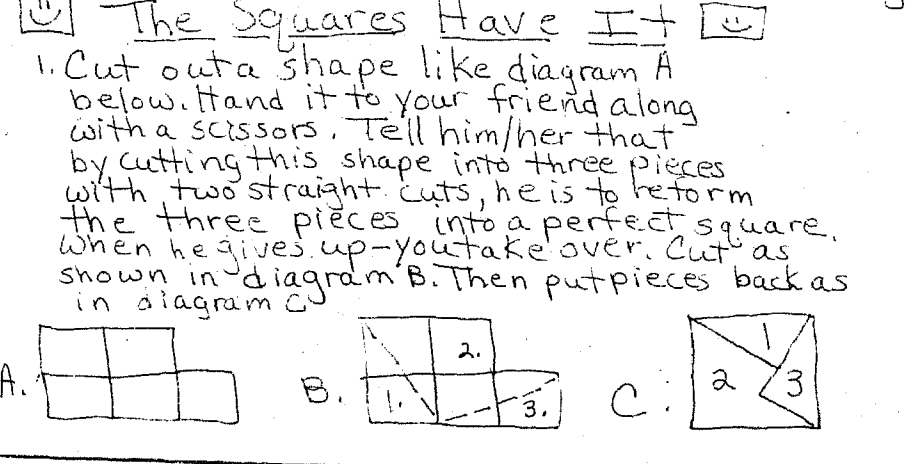 The Squares Have It
1. Cut out a shape like diagram A
below. Hand it to your friend along
with a scissors. Tell him/her that
by cutting this shape into three pieces
with two straight cuts, he is to reform
the three pieces into a perfect square.
When he gives up-you take over. Cut as
shown in diagram B. Then put pieces back as
in diagram C
A. B. 1. 2. 3. C. 1 2 3